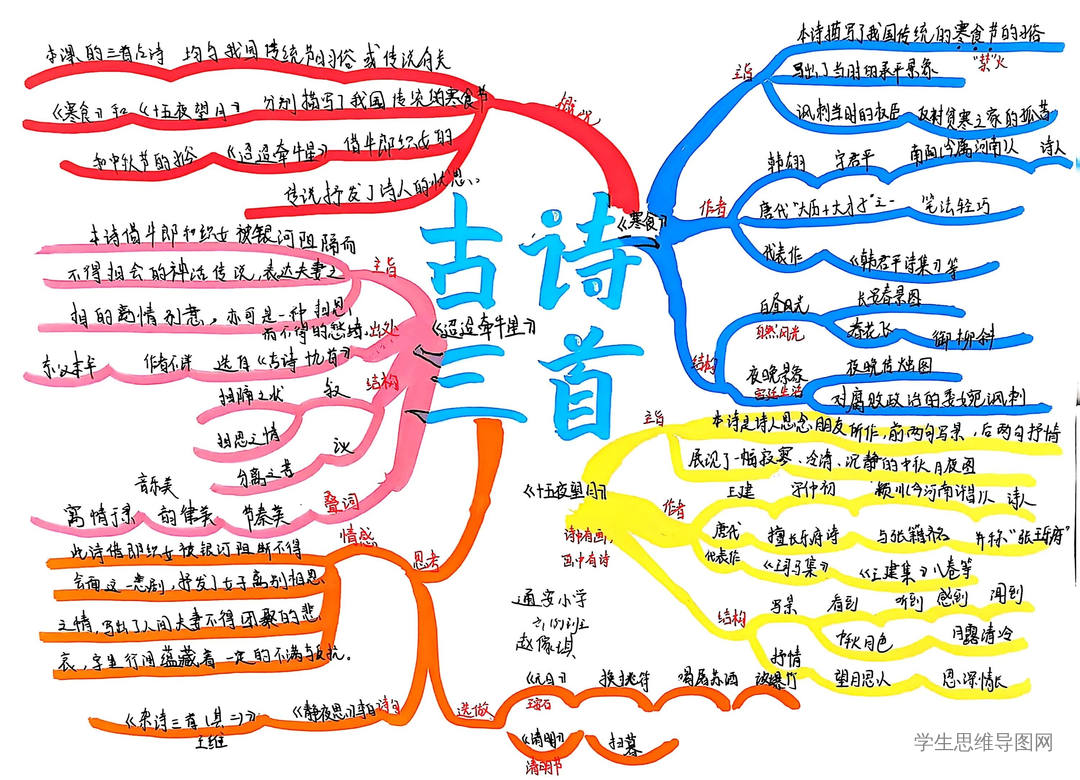 古诗三首
概况
本课的三首古诗 均与我国传统节日习俗或传说有关
《寒食》和《十五夜望月》 分别描写了我国传统的寒食节
和中秋节的习俗 《迢迢牵牛星》 借牛郎织女的
传说抒发了诗人的忧思。
《寒食》
主旨
本诗描写了我国传统的寒食节的习俗
"禁"火
写出了当时的承平景象
讽刺当时的权臣 反衬贫寒之家的孤苦
作者
韩翃 字君平 南阳(今属河南)人 诗人
唐代"大历十大才子"之一 笔法轻巧
代表作 《韩君平诗集》等
结构
白昼风光 长安春景图
自然风光
春花飞 御柳斜
夜晚景象 夜晚传烛图
宫廷生活
对腐败政治的委婉讽刺
《迢迢牵牛星》
主旨
本诗借牛郎和织女被银河阻隔而
不得相会的神话传说,表达夫妻之
间的离情别意,亦可是一种相思
而不得的愁绪
出处
东汉末年 作者不详 选自《古诗十九首》
结构
阻隔之状 叙
相思之情
分离之苦 议
叠词
音乐美
寓情于景 韵律美 节奏美
《十五夜望月》
诗中有画,
画中有诗
主旨
本诗是诗人思念朋友所作,前两句写景,后两句抒情
展现了一幅寂寥、冷清、沉静的中秋月夜图
作者
王建 字仲初 颍川(今河南许昌)人 诗人
唐代 擅长乐府诗 与张籍齐名 并称"张王乐府"
代表作 《王司马集》 《王建集》八卷等
结构
写景 看到 听到 感到 闻到
中秋月色 月露清冷
抒情
望月思人 思深情长
思考
情感
此诗借郎织女被银河阻断不得
会面这一悲剧,抒发了女子离别相思
之情,写出了人间夫妻不得团聚的悲
哀,字里行间蕴藏着一定的不满与反抗。
诗句
《静夜思》李白
《杂诗三首(其二)》
王维
选做
《元日》 换桃符 喝屠苏酒 放爆竹
王安石
《清明》 扫墓
清明节
通安小学
学生思维导图网